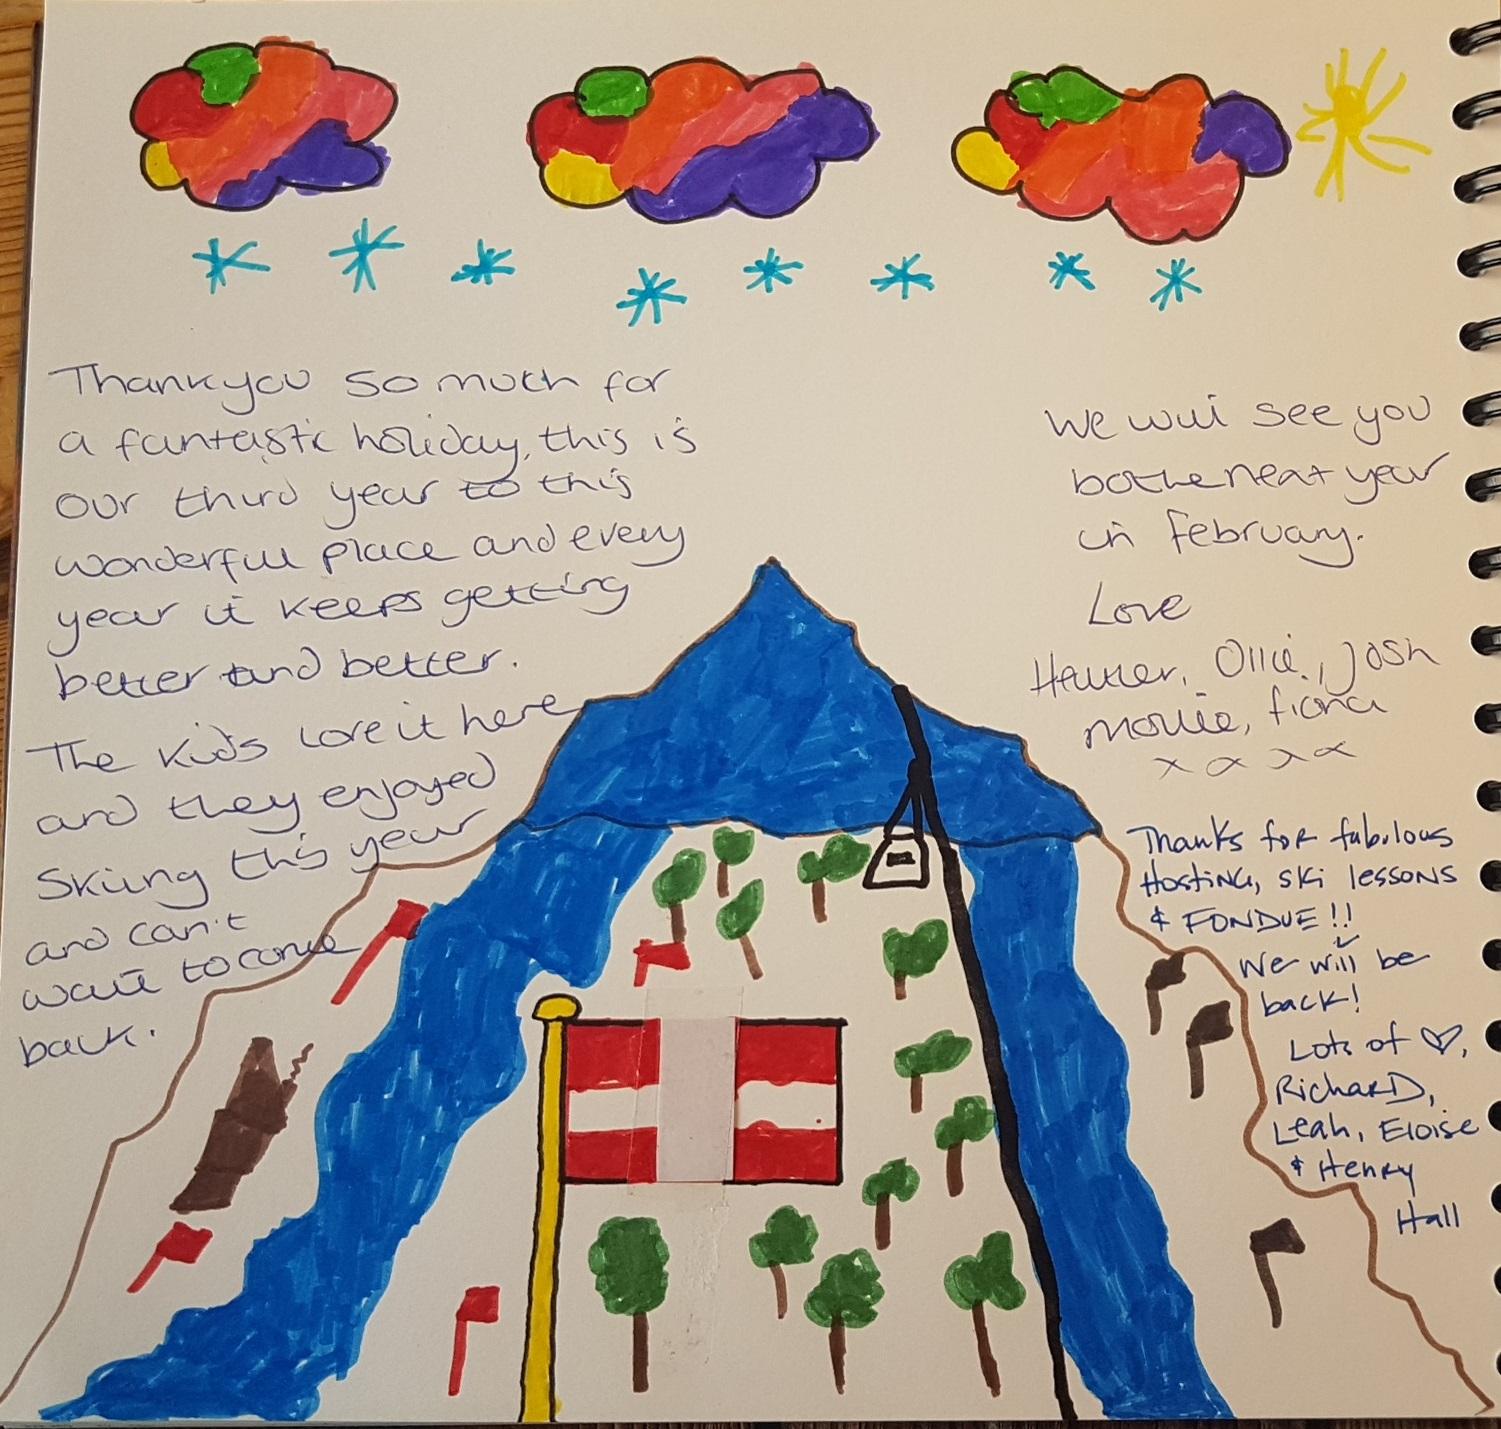 Thankyou so much for
a fantastic holiday, this is
our third year to this
wonderful place and every
year it keeps getting
better and better.
The kids love it here
and they enjoyed
skiing this year
and can't
wait to come
back.
We will see you
both next year
in february.
Love
Heather, Ollie, Josh
Mollie, fiona
x x x x
Thanks for fabulous
Hosting, ski lessons
& FONDUE!!
We will be
back!
Lots of ♡,
Richard,
Leah, Eloise
& Henry
Hall